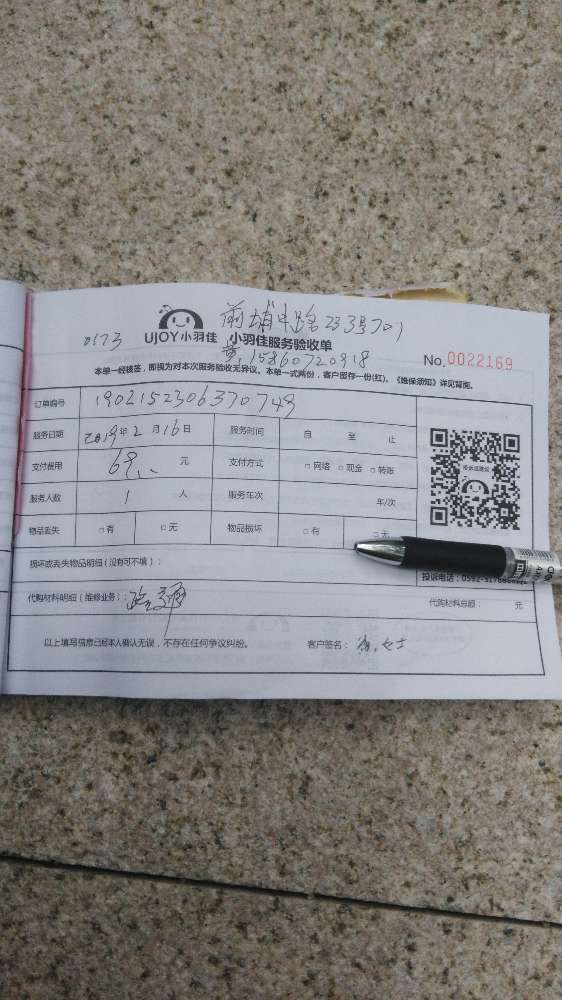 前埔中路233号701
0173 UJOY小羽佳 小羽佳服务验收单
黄.15860720918
No.0022169
本单一经核签，即视为对本次服务验收无异议。本单一式两份，客户留存一份(红)。《维保须知》详见背面。
订单编号 190215230637074
服务日期 2019年2月16日 服务时间 自 至 止
支付费用 69 元 支付方式 □网络 □现金 □转账
服务人数 1 人 服务车次 年/次
物品丢失 □有 □无 物品损坏 □有 □无
损坏或丢失物品明细（没有可不填）：
投诉电话：0592-
代购材料明细（维修业务）： 代购材料总额： 元
以上填写信息已经本人确认无误，不存在任何争议纠纷。 客户签名： 女士